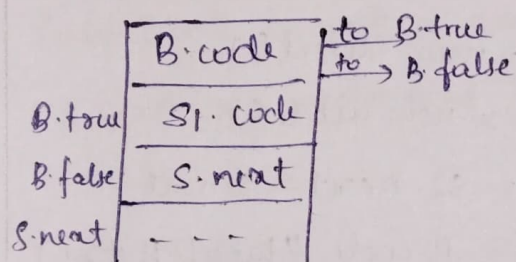 B.code to B.true
to B.false
B.true S1.code
B.false S.next
S.next - - -